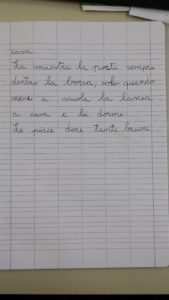 casa
La maestra la porta sempre
dentro la borsa, solo quando
viene a scuola la lascia
a casa e lei dorme.
Le piace dare tanti bacini